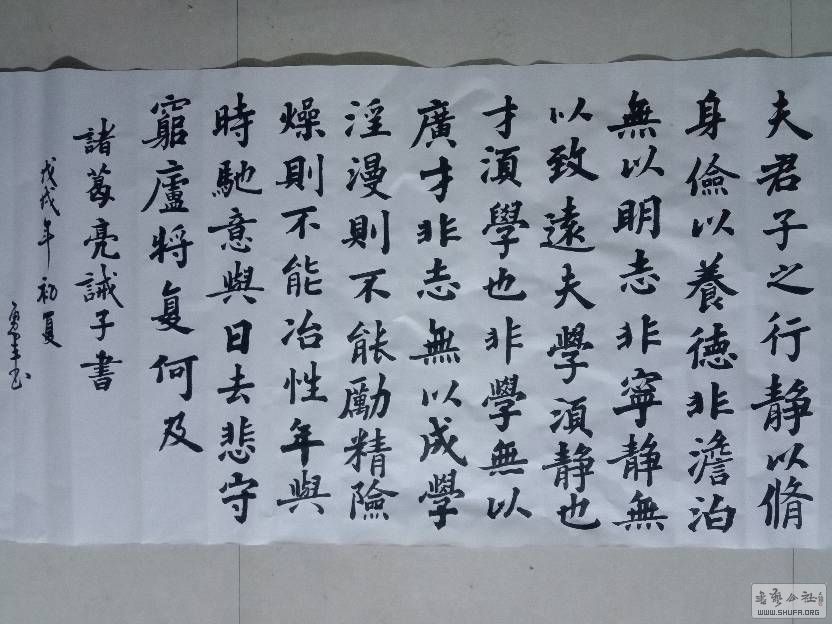 夫君子之行静以脩
身儉以養德非澹泊
無以明志非寧静無
以致遠夫學須静也
才須學也非學無以
廣才非志無以成學
淫漫則不能勵精險
燥則不能冶性年與
時馳意與日去悲守
窮廬將复何及
諸葛亮誡子書
戊戌年初夏
書藝公社
WWW.SHUFA.ORG